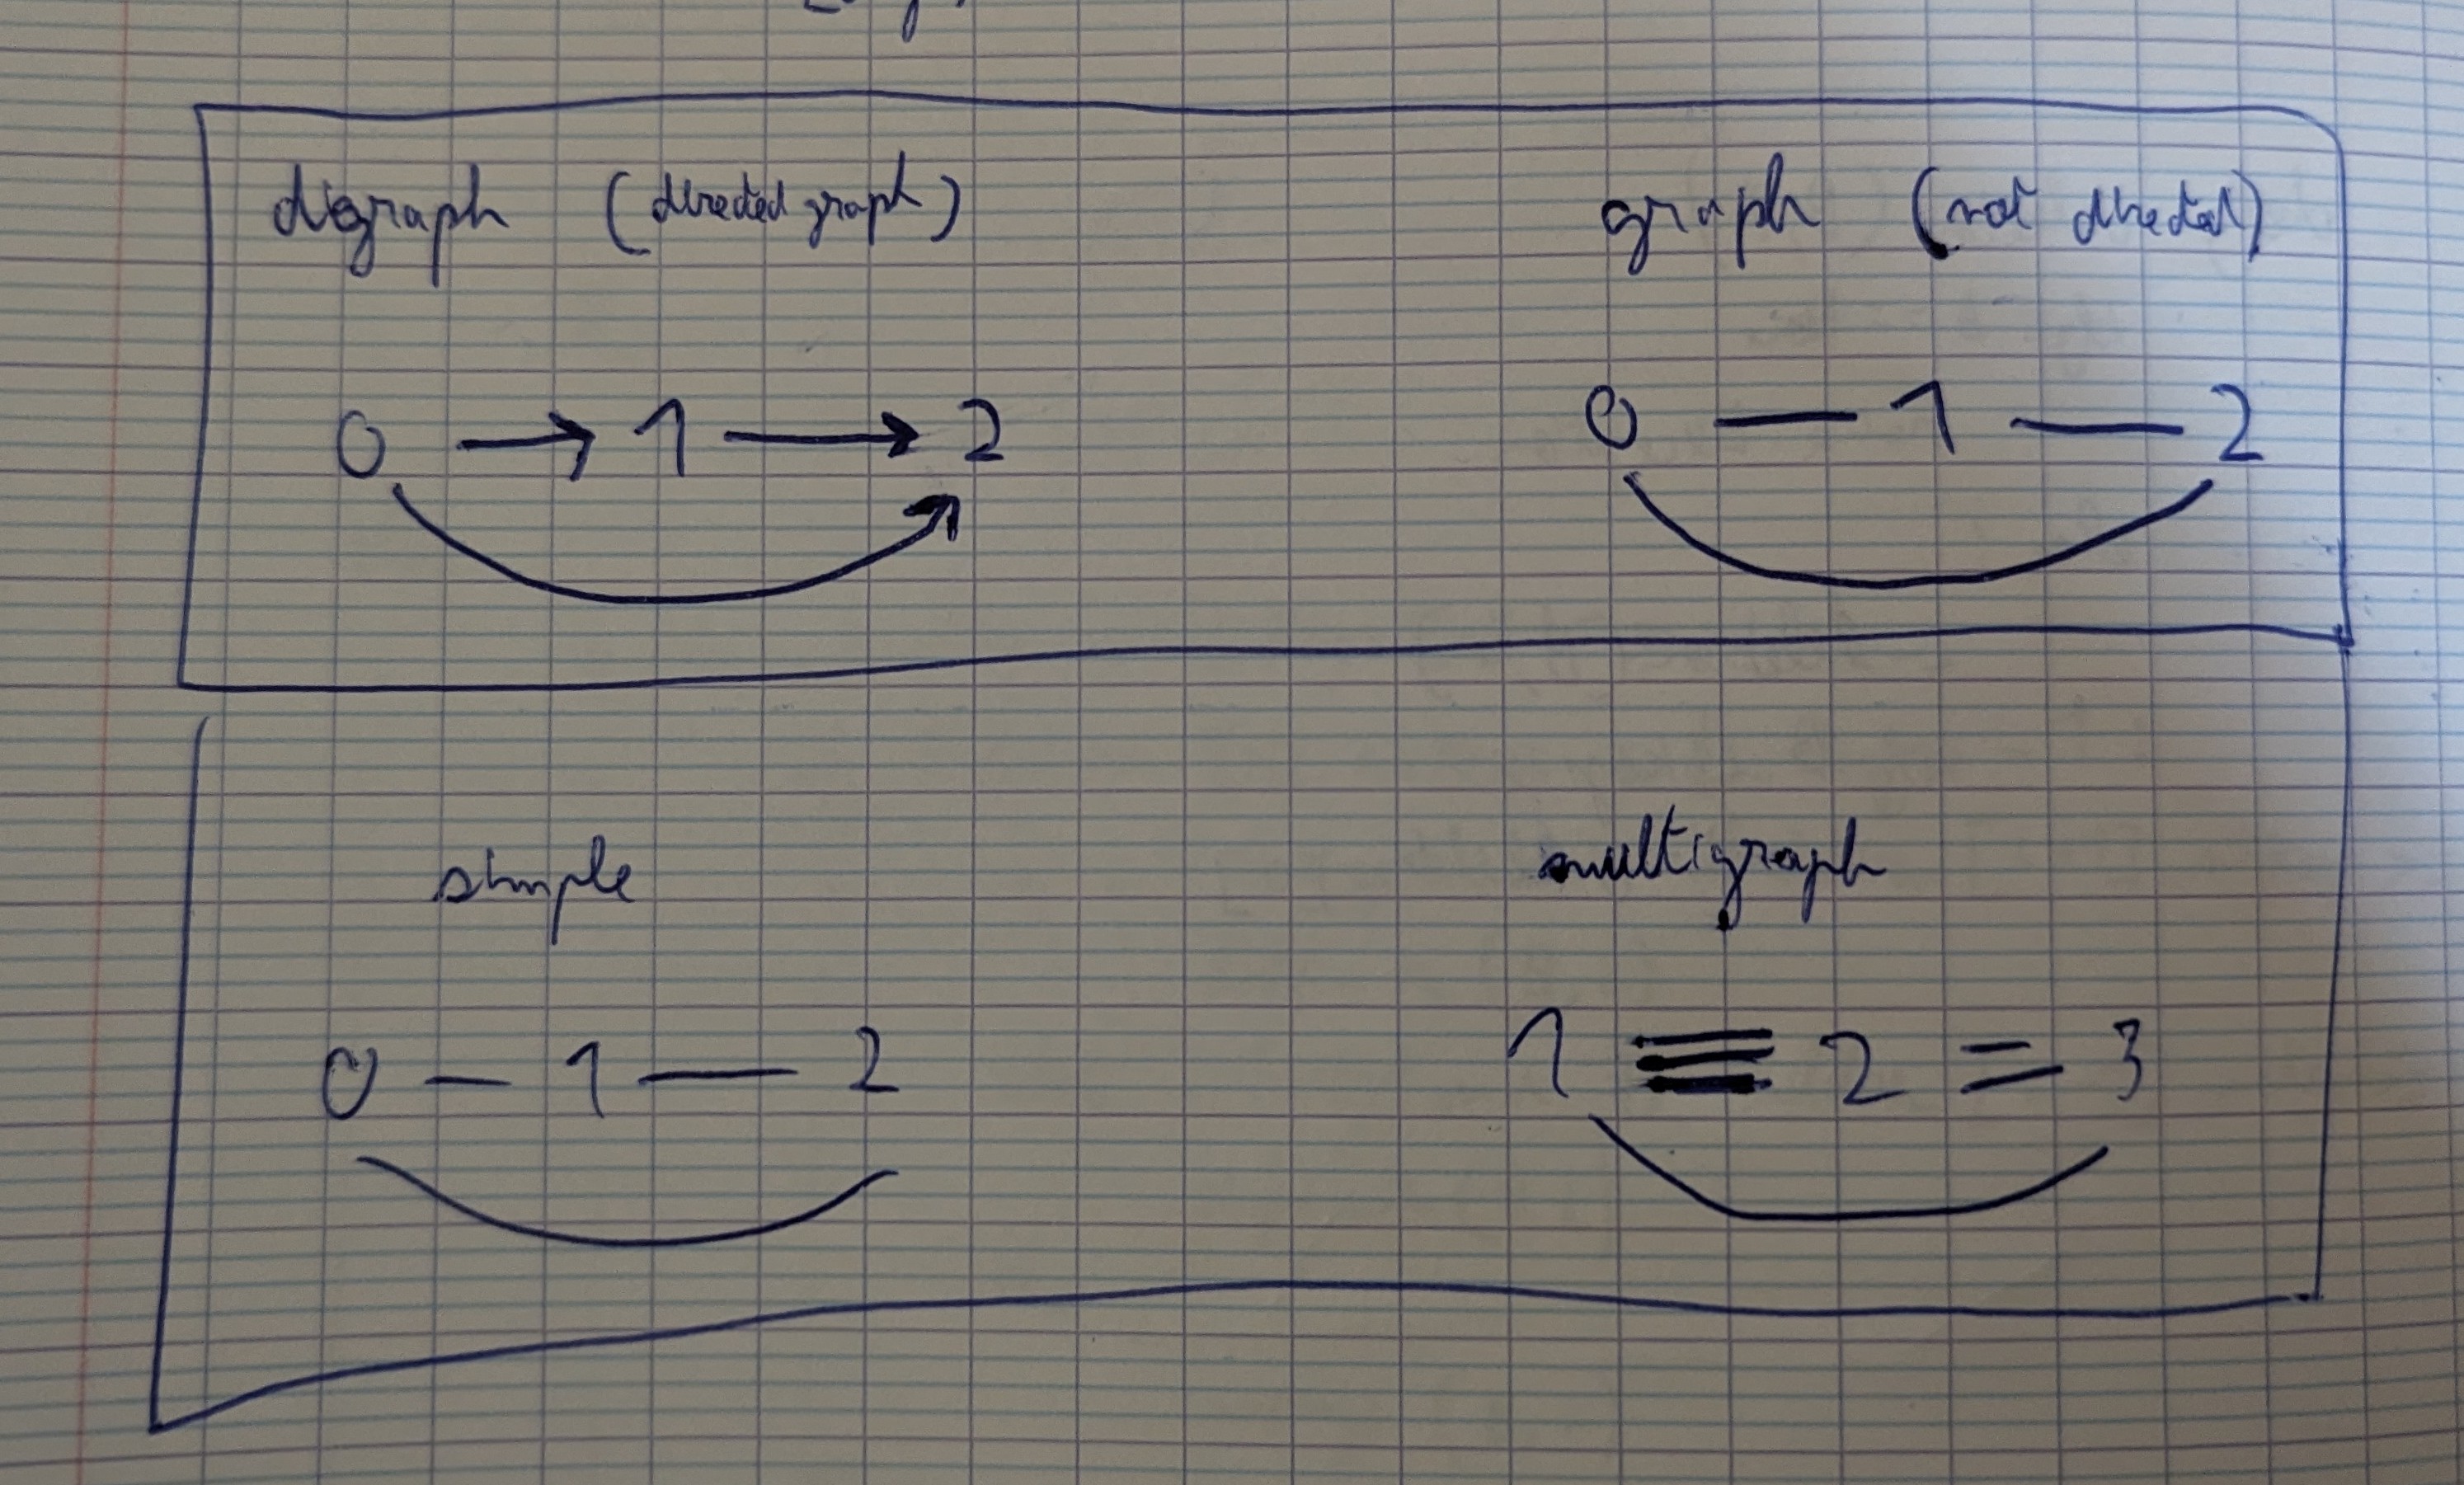 digraph (directed graph) graph (not directed)
0 → 1 → 2 0 — 1 — 2
simple multigraph
0 — 1 — 2 1 ≡ 2 = 3